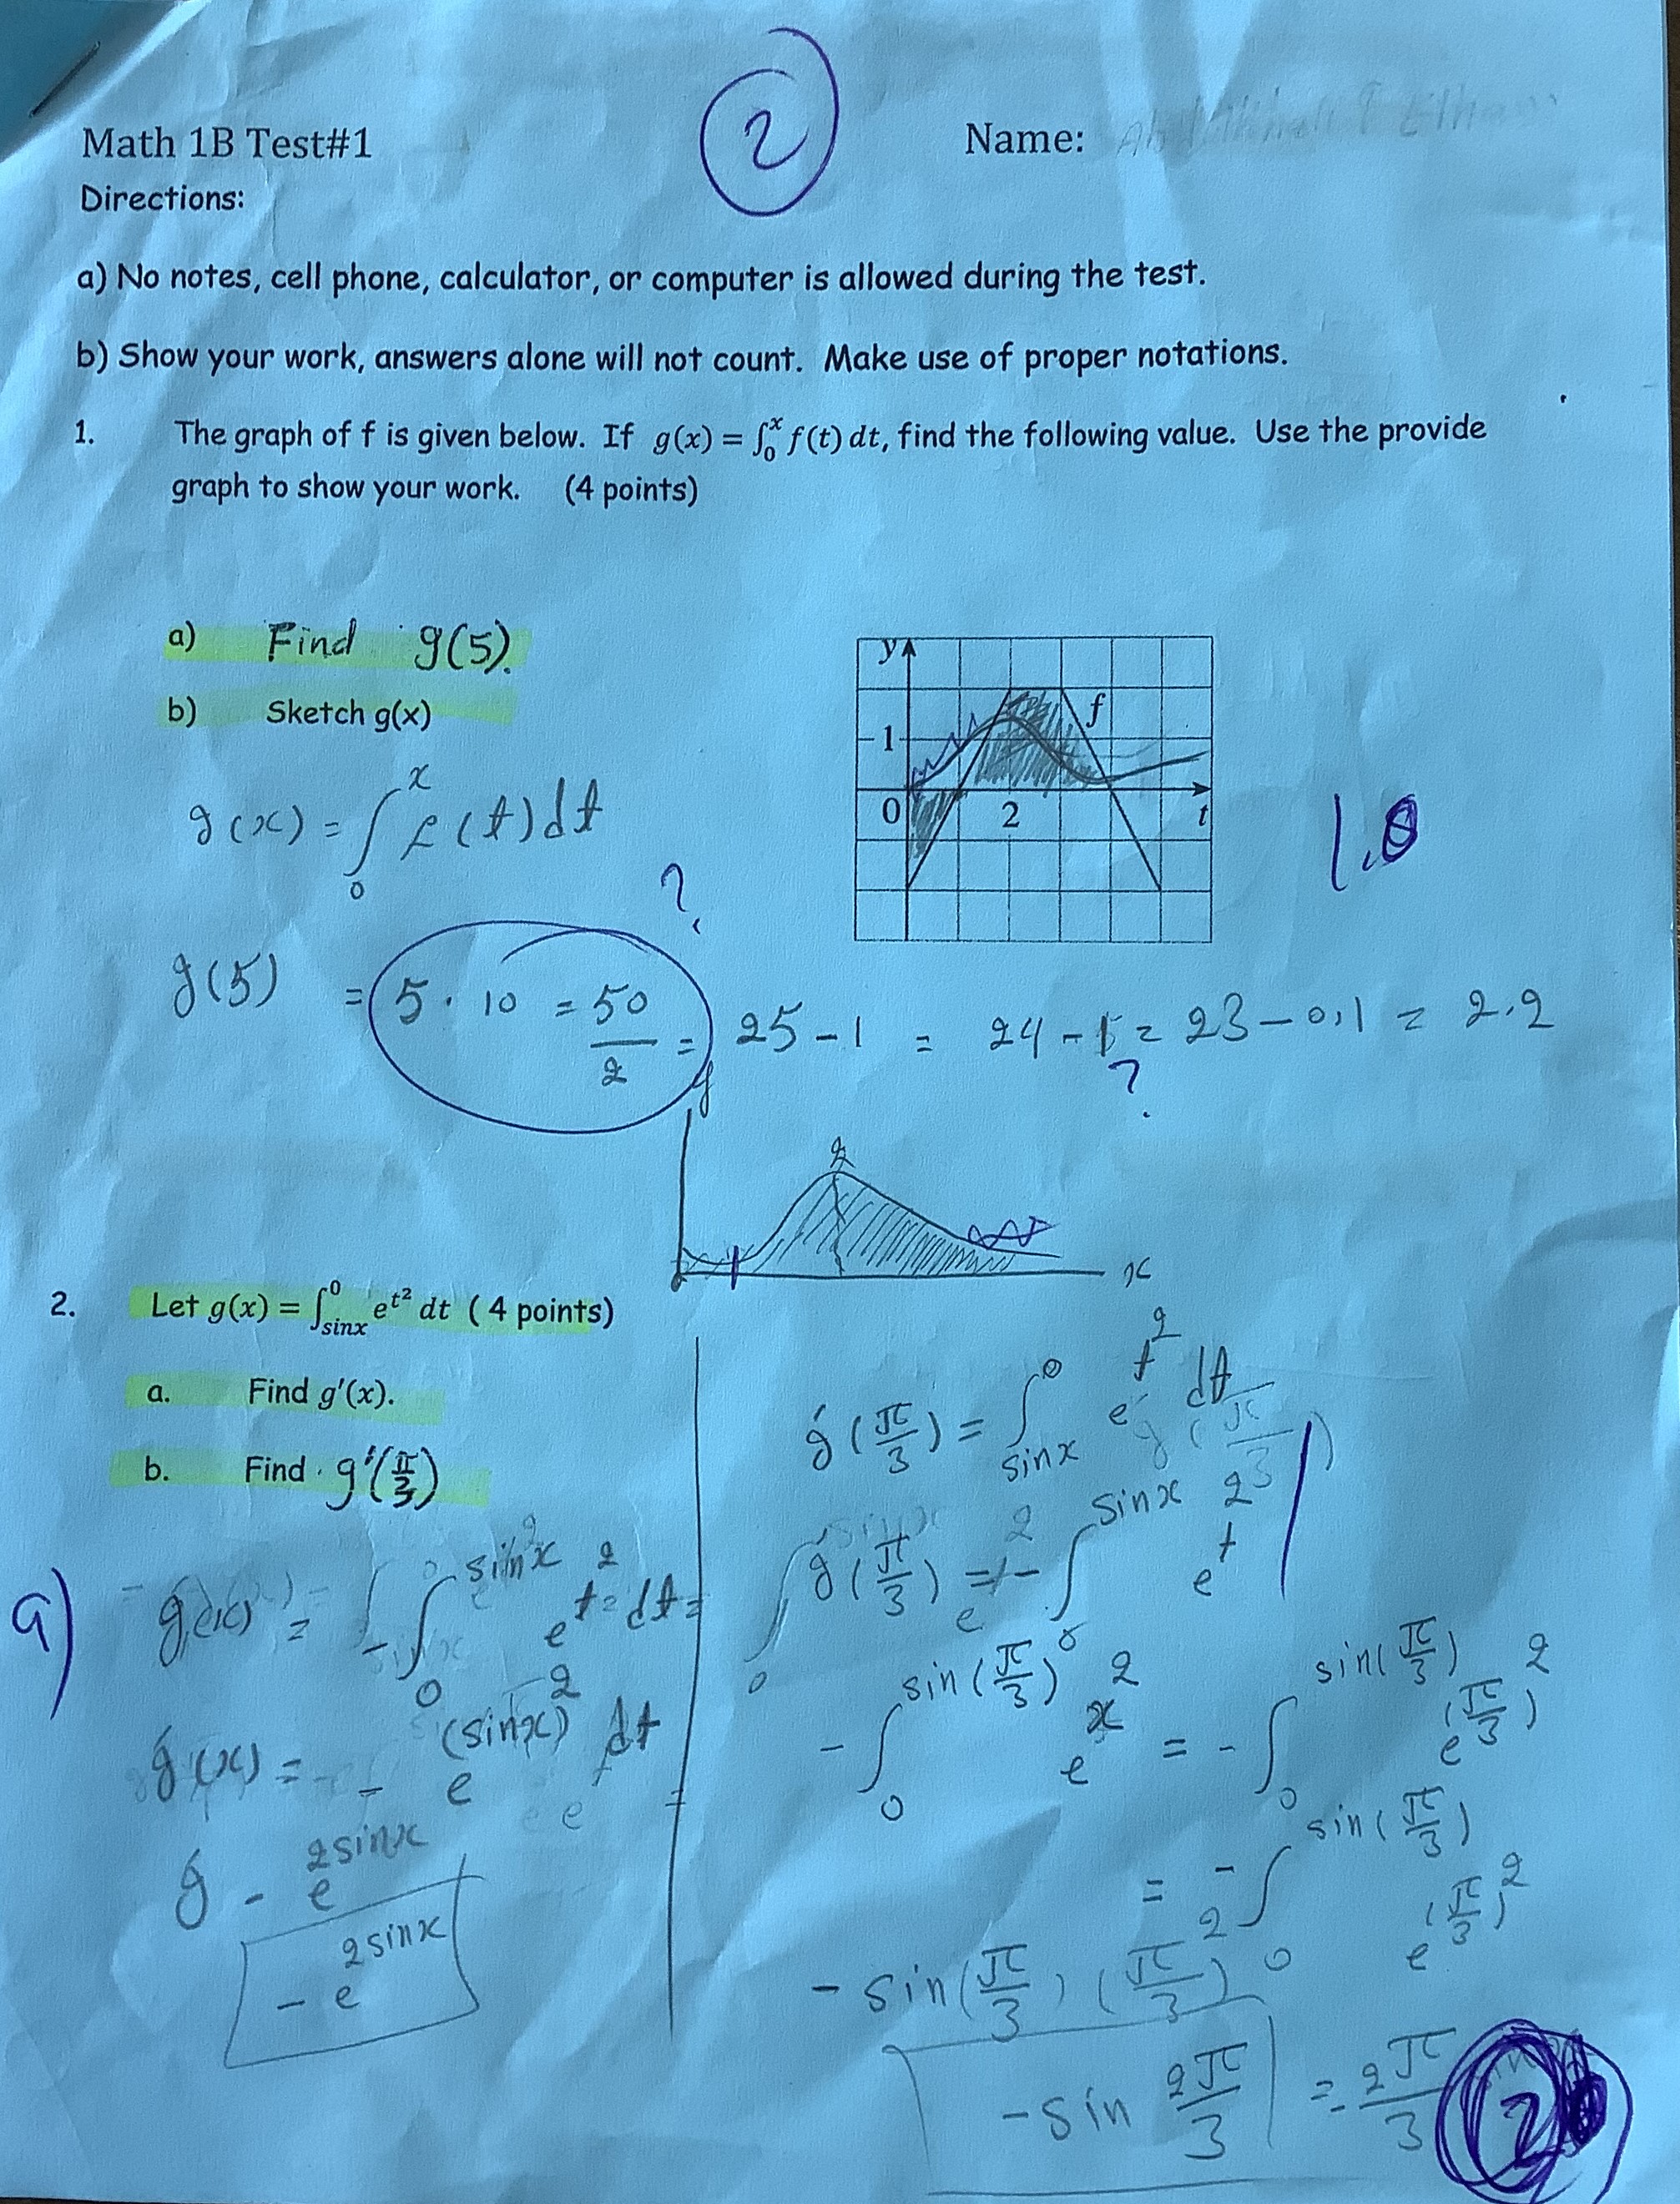 2
Math 1B Test#1
Name:
Directions:
a) No notes, cell phone, calculator, or computer is allowed during the test.
b) Show your work, answers alone will not count. Make use of proper notations.
1. The graph of f is given below. If g(x) = ∫₀ˣ f(t) dt, find the following value. Use the provide
graph to show your work. (4 points)
a) Find g(5).
b) Sketch g(x)
y
f
1
0 2 t
g(x) = ∫₀ˣ f(t)dt
1.0
?
g(5) = 5 · 10 = 50/2 = 25 - 1 = 24 - 1 = 23 - 0,1 = 2.2
?
y
2
x
2. Let g(x) = ∫_{sinx}^{0} e^{t²} dt ( 4 points)
a. Find g'(x).
b. Find g'(π/3)
a)
g(x) = - ∫_{0}^{sinx} e^{t²} dt =
g'(x) = - e^{(sinx)²} dt =
g' - e^{2sinx}
- e^{2sinx}
g'(π/3) = ∫_{sinx}^{0} e^{t²} dt
g'(π/3) = - ∫_{0}^{sinx} e^{t²}
- ∫_{0}^{sin(π/3)} e^{x²} = - ∫_{0}^{sin(π/3)} e^{(π/3)²}
= - ∫_{0}^{sin(π/3)} e^{(π/3)²}
- sin(π/3) (π/3)²
- sin 2π/3 = 2π/3
2